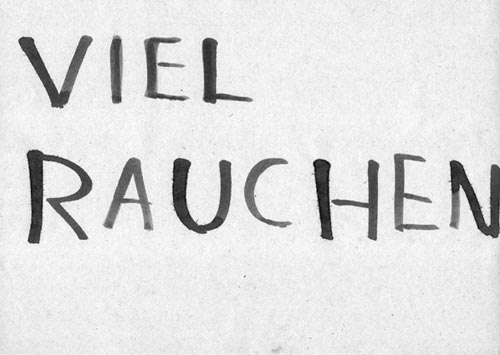 VIEL
RAUCHEN